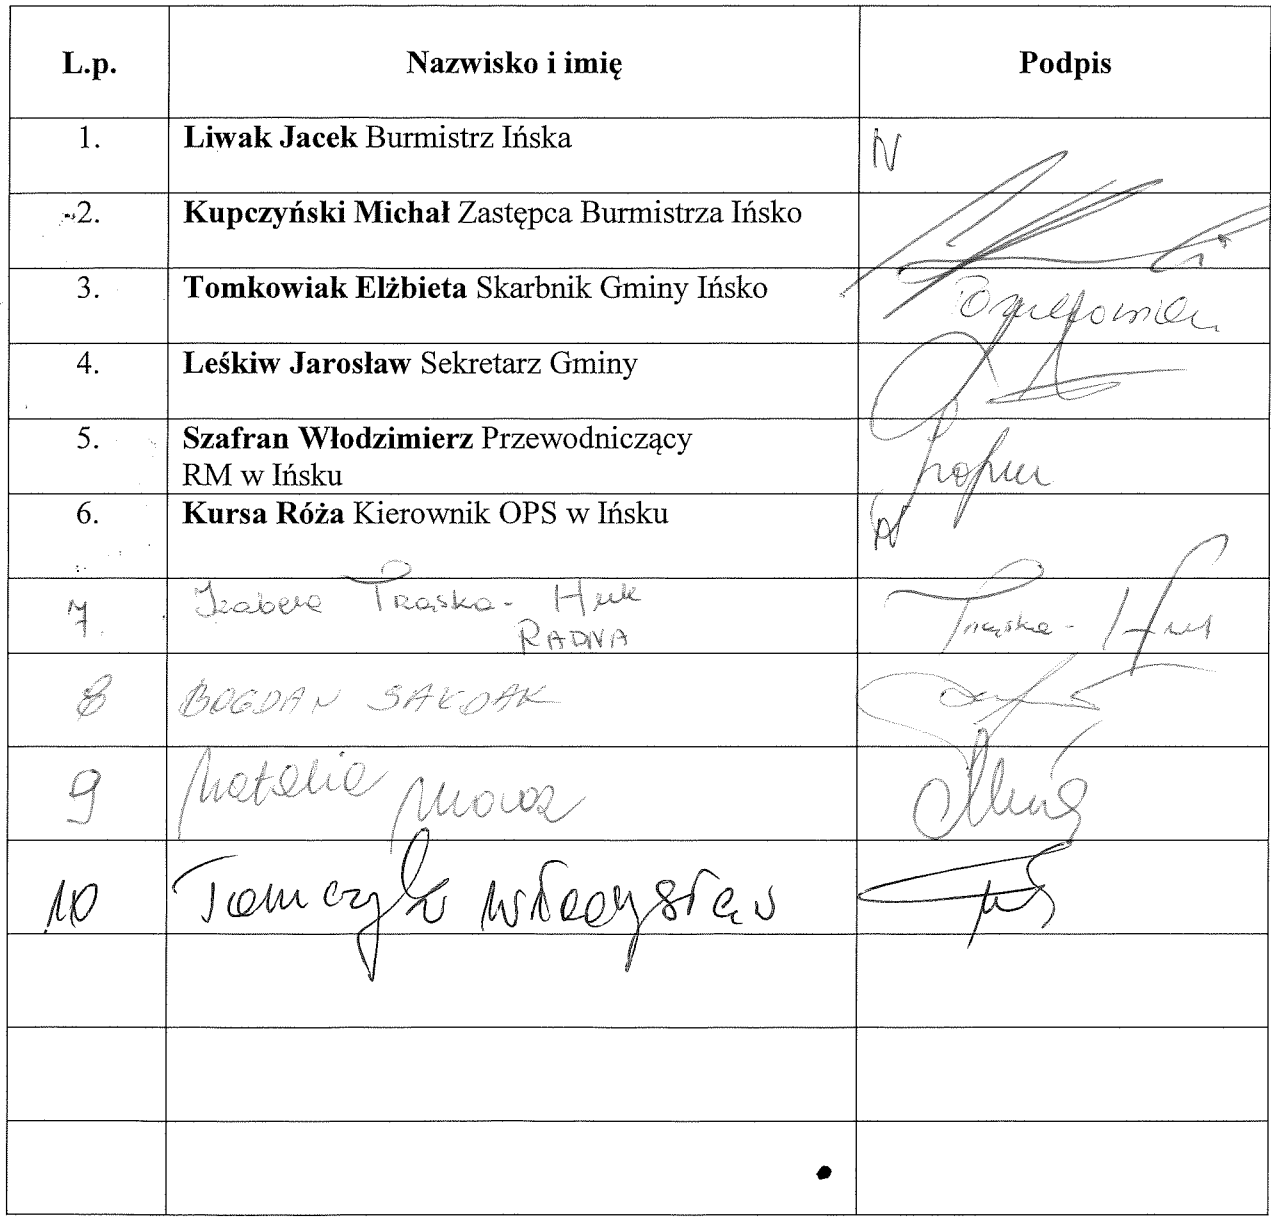 L.p. Nazwisko i imię Podpis
1. Liwak Jacek Burmistrz Ińska N
2. Kupczyński Michał Zastępca Burmistrza Ińsko
3. Tomkowiak Elżbieta Skarbnik Gminy Ińsko
4. Leśkiw Jarosław Sekretarz Gminy
5. Szafran Włodzimierz Przewodniczący
RM w Ińsku
6. Kursa Róża Kierownik OPS w Ińsku
7. Izabela Trąska-Huk Trąska-Huk
RADNA
8 BOGDAN
9 Natalia
10 Tomczyk Władysław